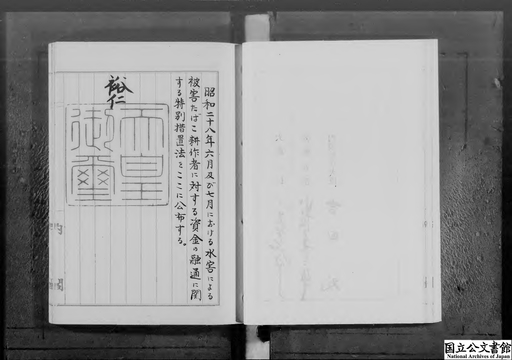 昭和二十八年六月及び七月における水害による
被害たばこ耕作者に対する資金の融通に関
する特別措置法をここに公布する。
裕仁
天皇
御璽
国立公文書館
National Archives of Japan